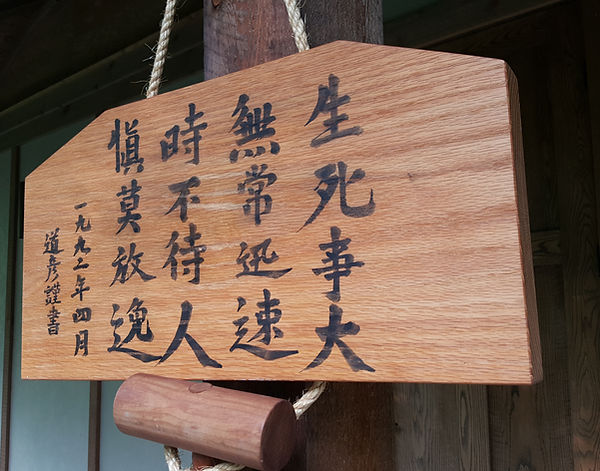 生死事大
無常迅速
時不待人
慎莫放逸
一九九二年四月
道彦謹書